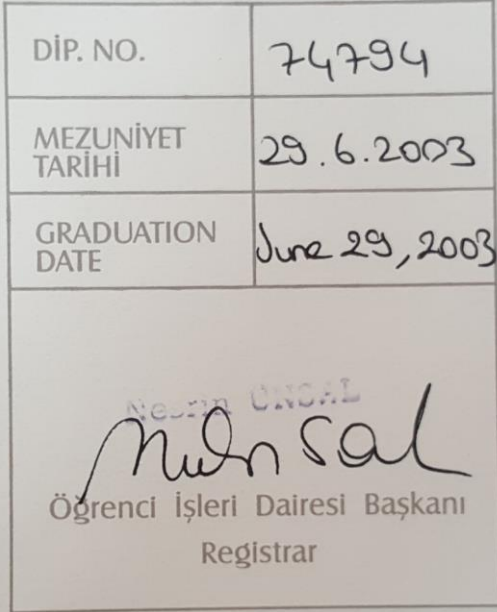 DİP. NO. 74794
MEZUNİYET TARİHİ 29.6.2003
GRADUATION DATE June 29, 2003
Nesrin ÜNSAL
Öğrenci İşleri Dairesi Başkanı
Registrar